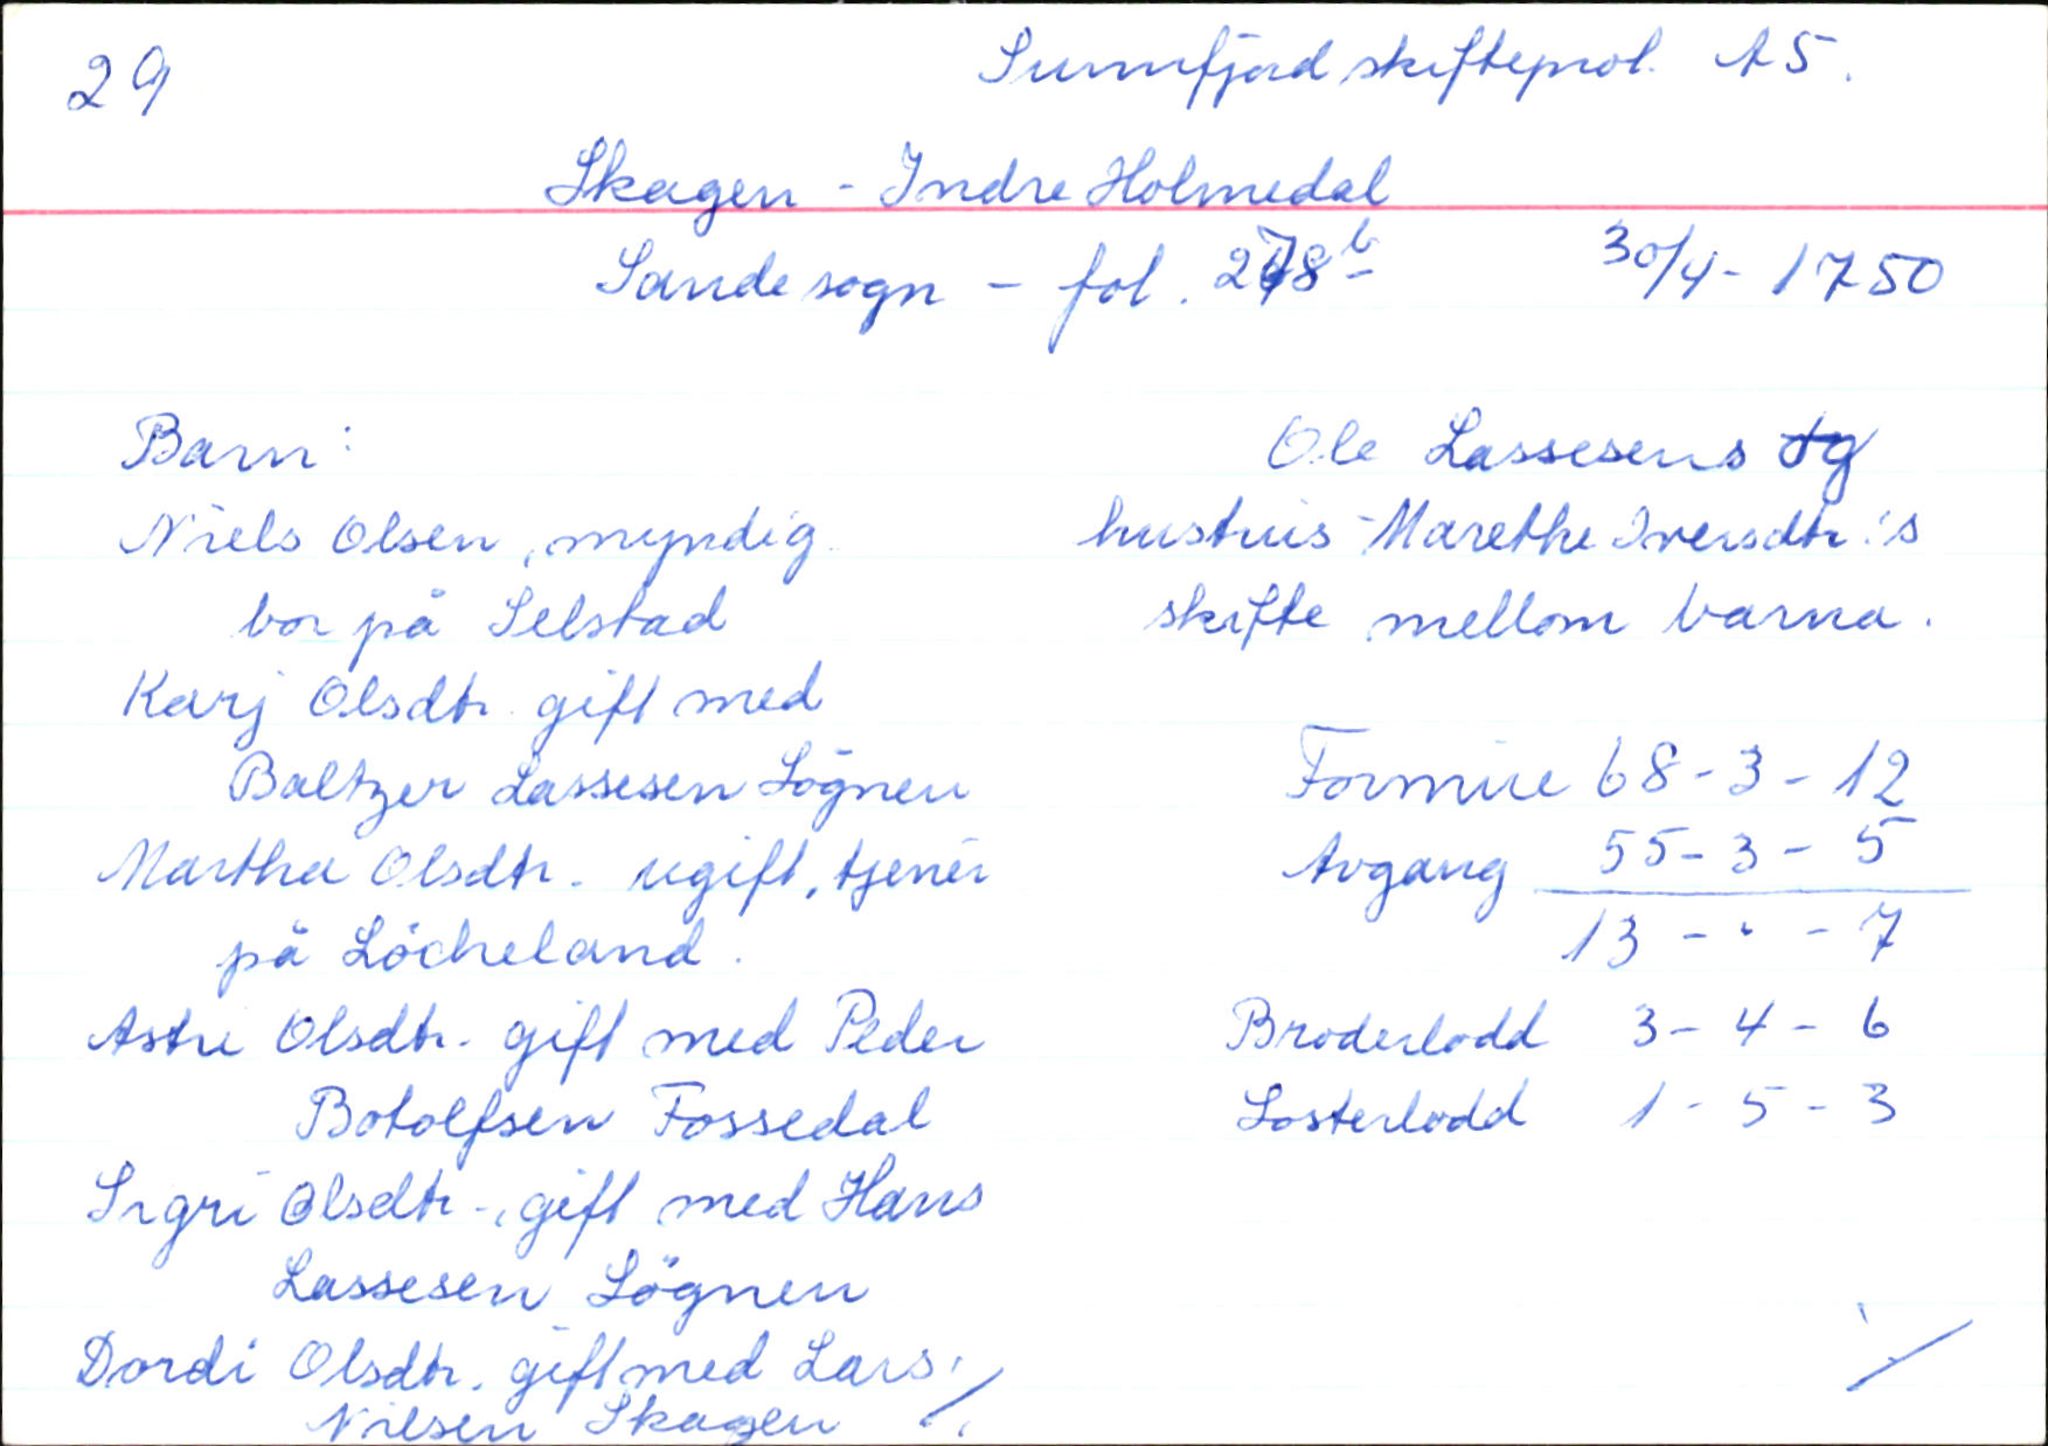 29
Sunnfjord skifteprot. A5.
Skagen - Indre Holmedal
Sande sogn - fol. 278b 30/4 - 1750
Barn:
Niels Olsen, myndig
bor på Selstad
Karj Olsdtr. gift med
Baltzer Lassesen Lögnen
Martha Olsdtr. ugift, tjener
på Löcheland.
Astri Olsdtr. gift med Peder
Botolfsen Fossedal
Sigri Olsdtr., gift med Hans
Lassesen Lögnen
Dordi Olsdtr. gift med Lars
Nilsen Skagen ./.
Ole Lassesens og
hustrus Marethe Iversdtr:s
skifte mellom barna.
Formue 68-3-12
Avgang 55-3-5
13 - " - 7
Broderlodd 3-4-6
Sosterlodd 1-5-3
./.